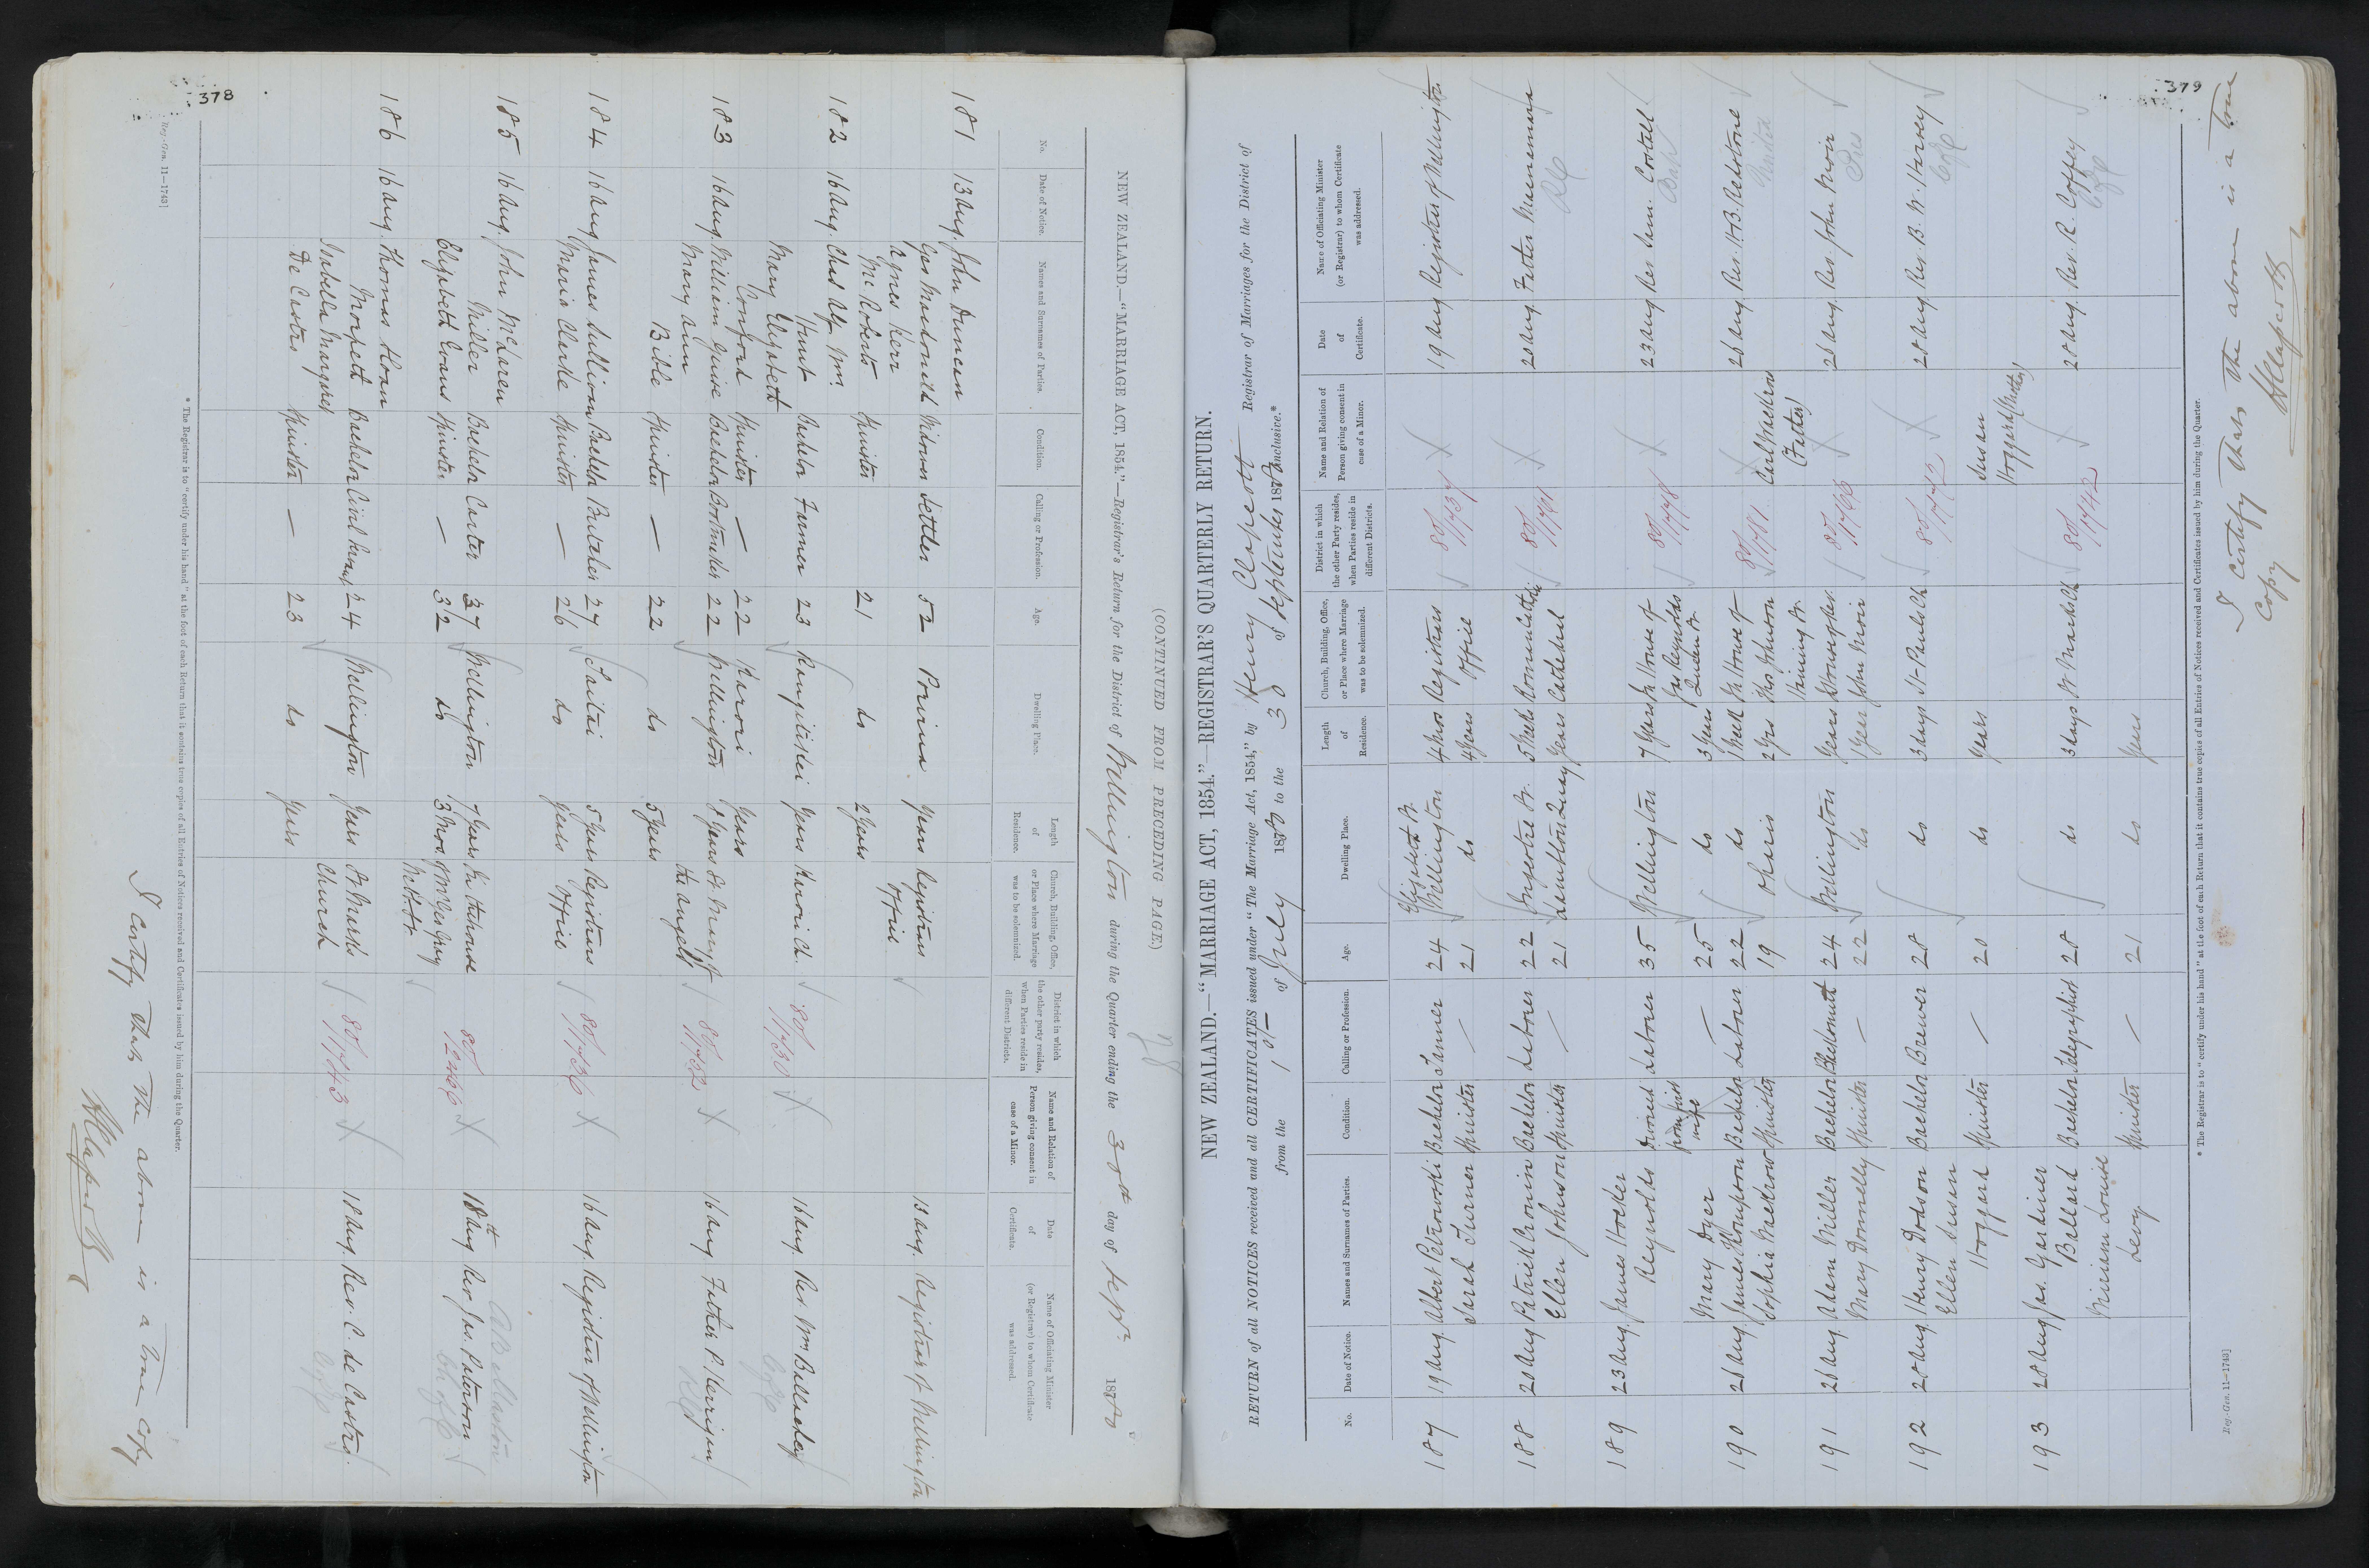 378
(CONTINUED FROM PRECEDING PAGE.)
NEW ZEALAND.—"MARRIAGE ACT, 1854."—Registrar's Return for the District of Wellington during the Quarter ending the 30th day of Sepr. 1880
No. Date of Notice. Names and Surnames of Parties. Condition. Calling or Profession. Age. Dwelling Place. Length of Residence. Church, Building, Office, or Place where Marriage was to be solemnized. District in which the other party resides, when Parties reside in different Districts. Name and Relation of Person giving consent in case of a Minor. Date of Certificate. Name of Officiating Minister (or Registrar) to whom Certificate was addressed.
181 13 Aug. John Duncan
Macdonald Widower Settler 52 Porirua Years Registrars 13 Aug. Registrar of Wellington
Agnes Kerr Office
McRoberts Spinster 21 do 2 Years
182 16 Aug. Chas Alf. Wm.
Hunt Bachelor Farmer 23 Rangitikei Years Karori Ch. 80/1730 16 Aug. Rev Wm
Mary Elizabeth C of E
Comford Spinster — 22 Karori Years
183 16 Aug. William Guise Bachelor 22 Wellington Years St. Mary of 80/1732 16 Aug. Father P. Kerrigan
Mary Ann the Angels RC
Bible Spinster — 22 do 5 Years
184 16 Aug. James Sullivan Bachelor Butcher 27 Taitai 5 Years Registrars 80/1736 16 Aug. Registrar of Wellington
Maria Clarke Spinster — 26 do Years Office
185 16 Aug. John McLaren
Miller Bachelor Carter 37 Wellington 7 Years In the house 80/2466 18th Aug Rev. Jas. Paterson
Elizabeth Evans Spinster — 32 do 3 Mos. of Mr Geo Gray
186 16 Aug. Thomas Sloan
Morpeth Bachelor Civil Servt. 24 Wellington Years St Marks 80/1743 18 Aug. Rev. C. de Castro.
Isabella Marques Church C of E
De Castro Spinster — 23 do Years
* The Registrar is to "certify under his hand" at the foot of each Return that it contains true copies of all Entries of Notices received and Certificates issued by him during the Quarter.
Reg.-Gen. 11—1743]
I certify that the above is a true copy
379
NEW ZEALAND.—"MARRIAGE ACT, 1854."—REGISTRAR'S QUARTERLY RETURN.
RETURN of all NOTICES received and all CERTIFICATES issued under "The Marriage Act, 1854," by Henry Clapcott Registrar of Marriages for the District of
from the 1st of July 1880 to the 30 of September 1880 inclusive.*
No. Date of Notice. Names and Surnames of Parties. Condition. Calling or Profession. Age. Dwelling Place. Length of Residence. Church, Building, Office, or Place where Marriage was to be solemnized. District in which the other Party resides, when Parties reside in different Districts. Name and Relation of Person giving consent in case of a Minor. Date of Certificate. Name of Officiating Minister (or Registrar) to whom Certificate was addressed.
Elizabeth St.
187 19 Aug. Albert Petrowski Bachelor Tanner 24 Wellington 4 Years Registrars 80/1737 19 Aug Registrar of Wellington
Sarah Turner Spinster — 21 do 4 Years Office
188 20 Aug Patrick Cronin Bachelor Labourer 22 Ingestre St. 5 Weeks 20 Aug. Father
Ellen Johnson Spinster — 21 Lambton Quay Years Cathedral RC
189 23 Aug. James Hosker
Reynolds Divorced Labourer 35 Wellington 7 Years In House of 80/1748 23 Aug Rev Wm. Costall
from first wife Jas Reynolds
Mary Dyer — 25 do 3 Years
190 26 Aug. James Thompson Bachelor Labourer 22 do 1 Week In House of 26 Aug. Rev. H. B. Redstone
Sophia Spinster 19 Ohariu 2 Yrs Thos Johnson (Father)
191 26 Aug. Adam Miller Bachelor Blacksmith 24 Wellington Years 26 Aug. Rev John Moir
Mary Donnelly Spinster — 22 do 1 Year John Moir Pres
192 28 Aug. Henry Dodson Bachelor Brewer 28 do 3 days St Pauls Ch 80/1772 28 Aug Rev. B. W. Harvey
Ellen Susan C of E
Hoggard Spinster — 20 do Years Susan Hoggard (Mother)
193 28 Aug Jas. Gardiner
Ballard Bachelor Telegraphist 28 do 3 days St Marks Ch 80/1742 28 Aug. Rev. R. Coffey
Miriam Louise
Levy Spinster — 21 do Years
* The Registrar is to "certify under his hand" at the foot of each Return that it contains true copies of all Entries of Notices received and Certificates issued by him during the Quarter.
Reg.-Gen. 11—1743]
I certify that the above is a true
copy
HClapcott